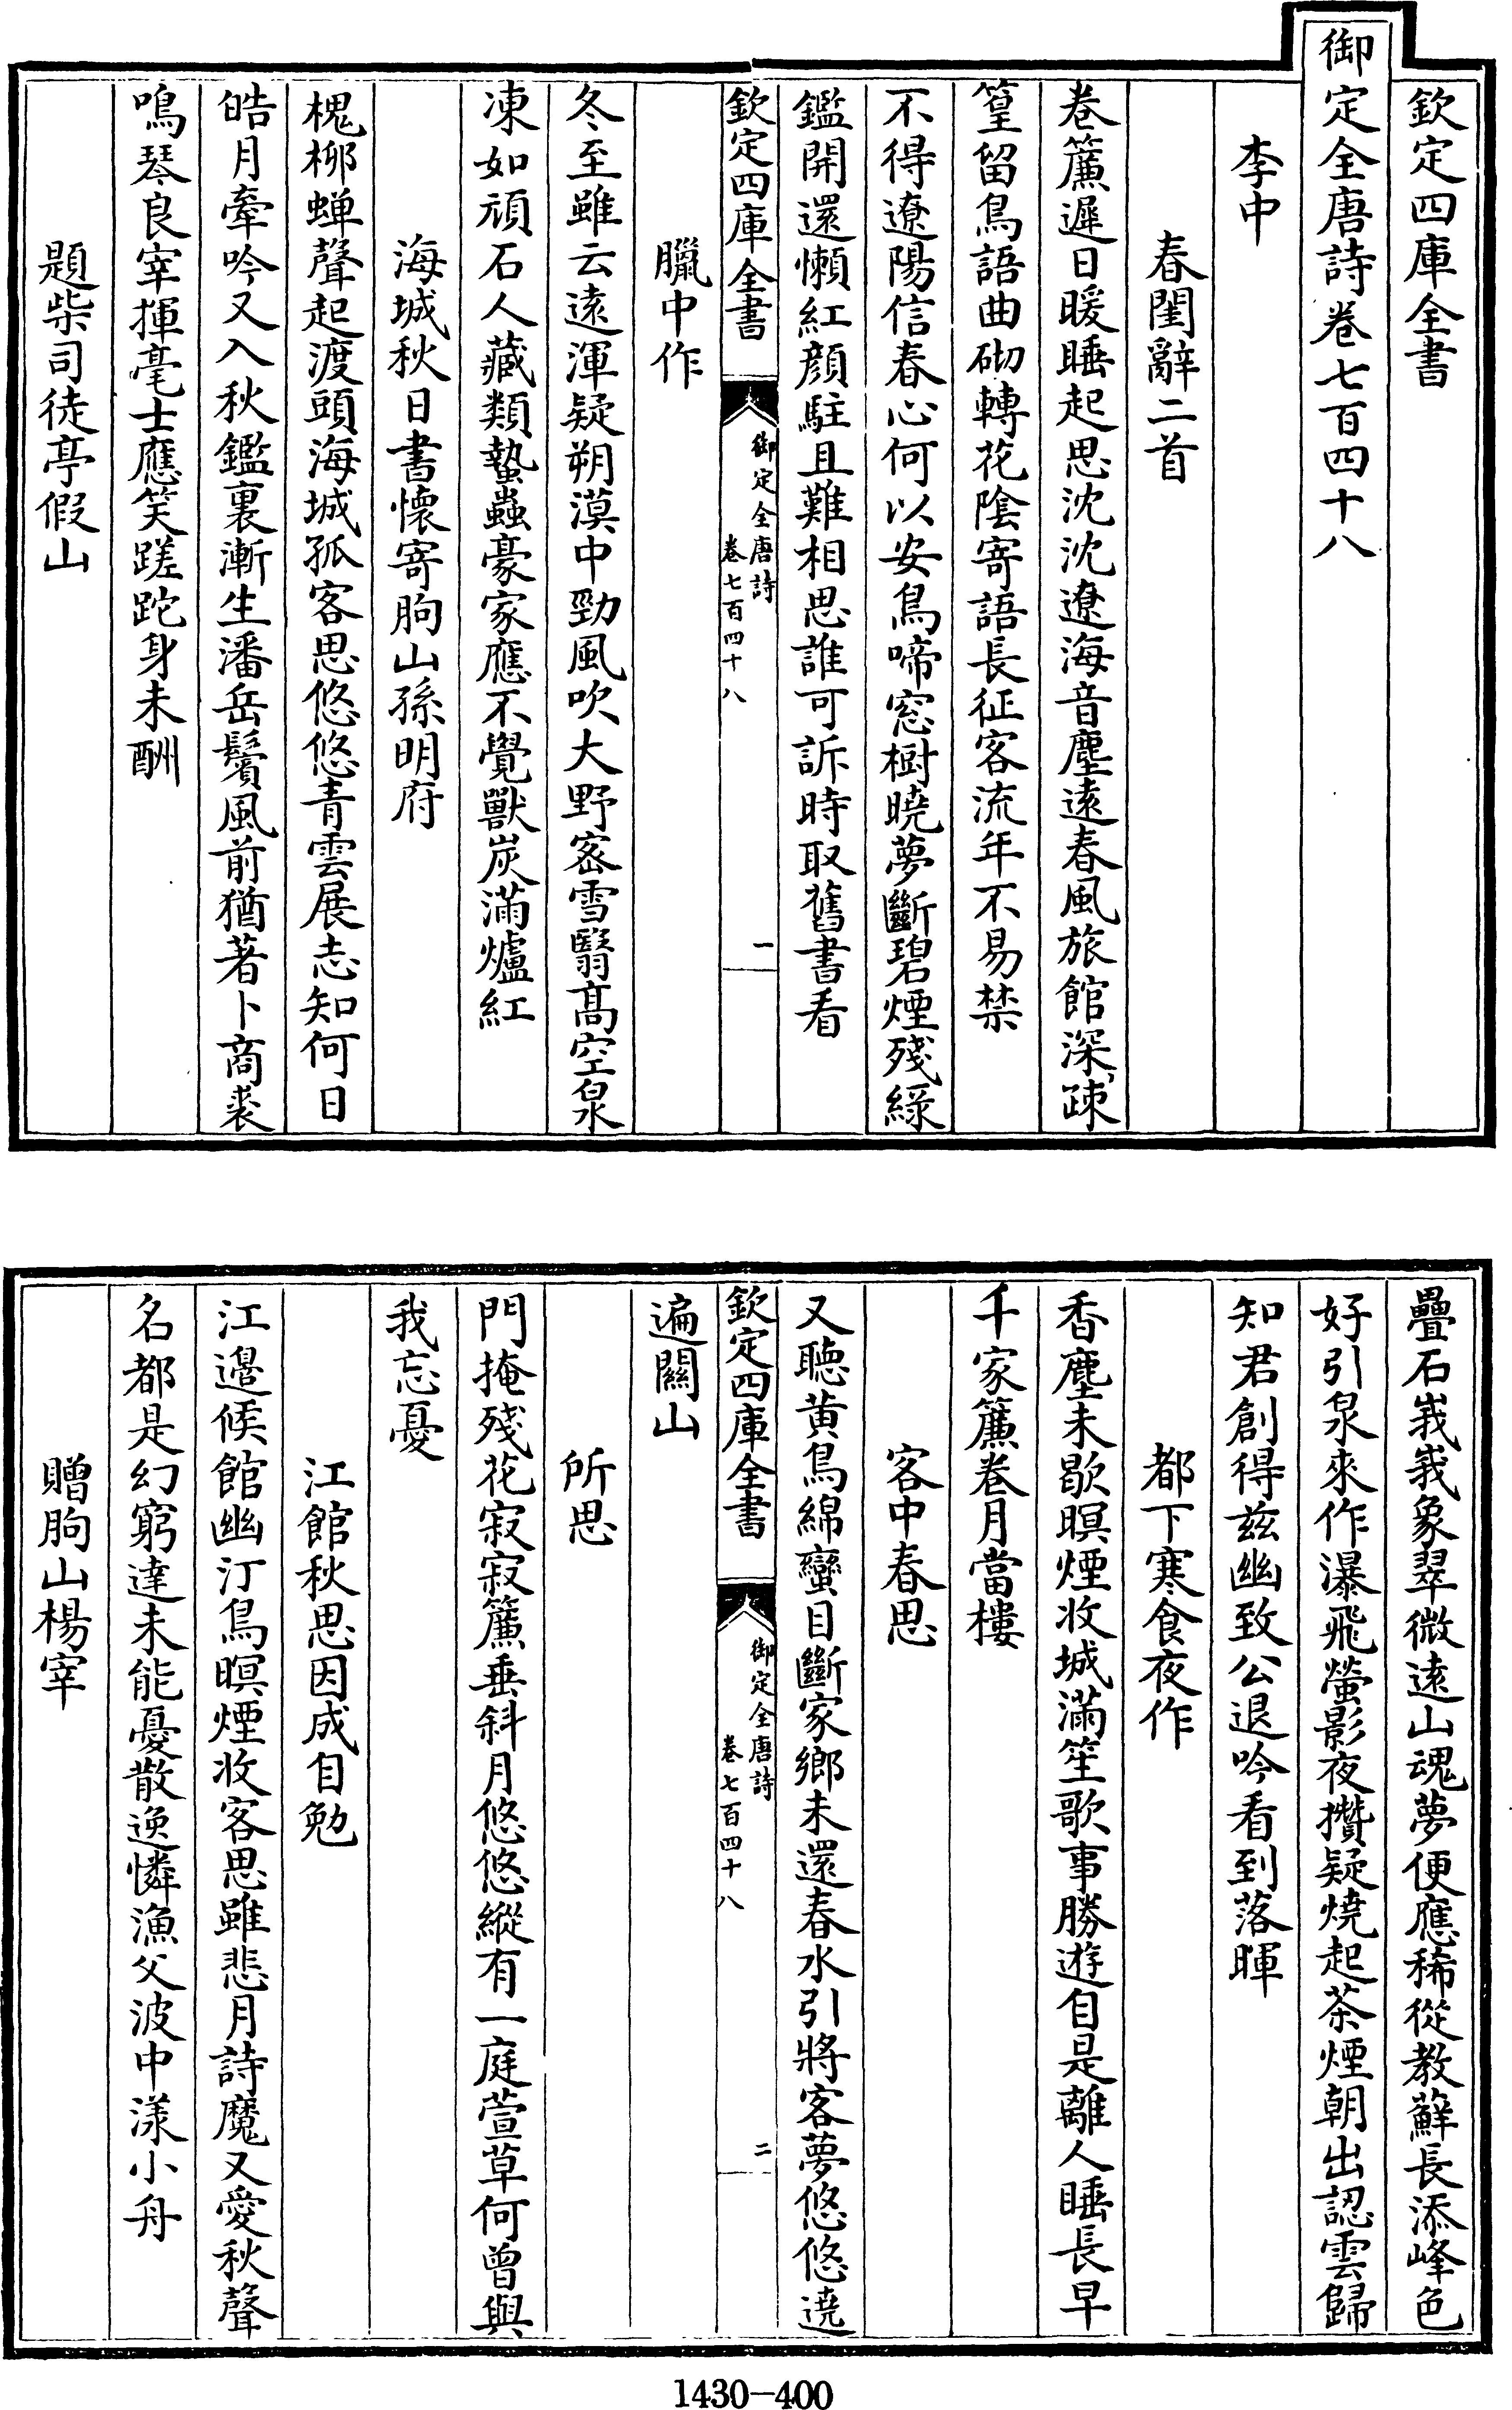 欽定四庫全書
御定全唐詩卷七百四十八
李中
春閨辭二首
卷簾遲日暖睡起思沈沈遼海音塵遠春風旅館深疎
篁留鳥語曲砌轉花陰寄語長征客流年不易禁
不得遼陽信春心何以安鳥啼窓樹曉夢斷碧煙殘綠
鑑開還懶紅顔駐且難相思誰可訴時取舊書看
欽定四庫全書
御定全唐詩
卷七百四十八
一
臘中作
冬至雖云遠渾疑朔漠中勁風吹大野宻雪翳髙空泉
凍如頑石人藏類蟄蟲豪家應不覺獸炭滿爐紅
海城秋日書懷寄朐山孫明府
槐栁蟬聲起渡頭海城孤客思悠悠青雲展志知何日
皓月牽吟又入秋鑑裏漸生潘岳鬢風前猶著卜商裘
鳴琴良宰揮毫士應笑蹉跎身未酬
題柴司徒亭假山
疊石峩峩象翠微遠山魂夢便應稀從教蘚長添峰色
好引泉來作瀑飛螢影夜攢疑燒起茶煙朝出認雲歸
知君創得兹幽致公退吟看到落暉
都下寒食夜作
香塵未歇暝煙收城滿笙歌事勝遊自是離人睡長早
千家簾卷月當樓
客中春思
又聽黄鳥綿蠻目斷家鄉未還春水引將客夢悠悠遶
欽定四庫全書
御定全唐詩
卷七百四十八
二
遍關山
所思
門掩殘花寂寂簾垂斜月悠悠縱有一庭萱草何曾與
我忘憂
江館秋思因成自勉
江邉候館幽汀鳥暝煙收客思雖悲月詩魔又愛秋聲
名都是幻窮達未能憂散逸憐漁父波中漾小舟
贈朐山楊宰
1430-400